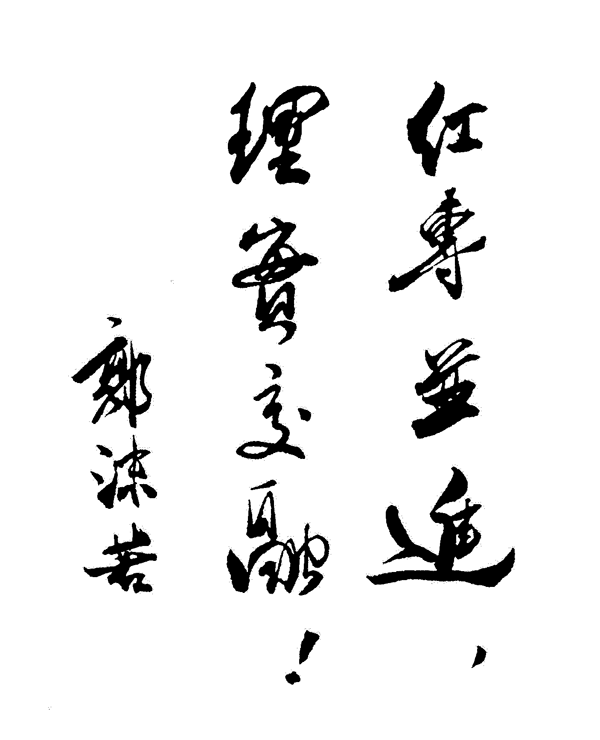 紅專並進、
理實交融！
郭沫若